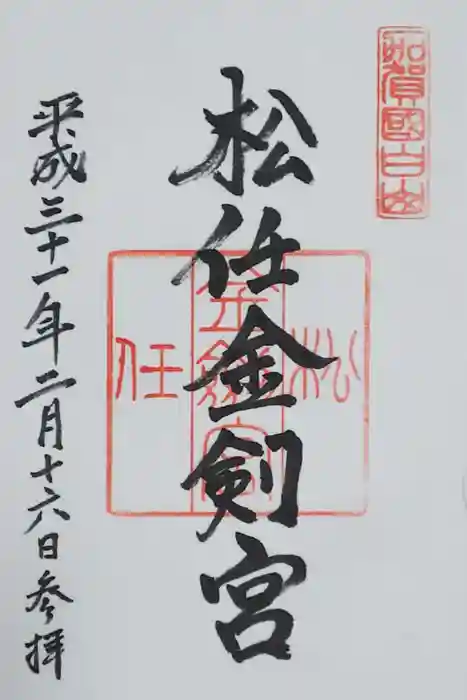 加賀國白山
松任金剣宮
松
金劔宮
任
平成三十一年二月十六日参拝